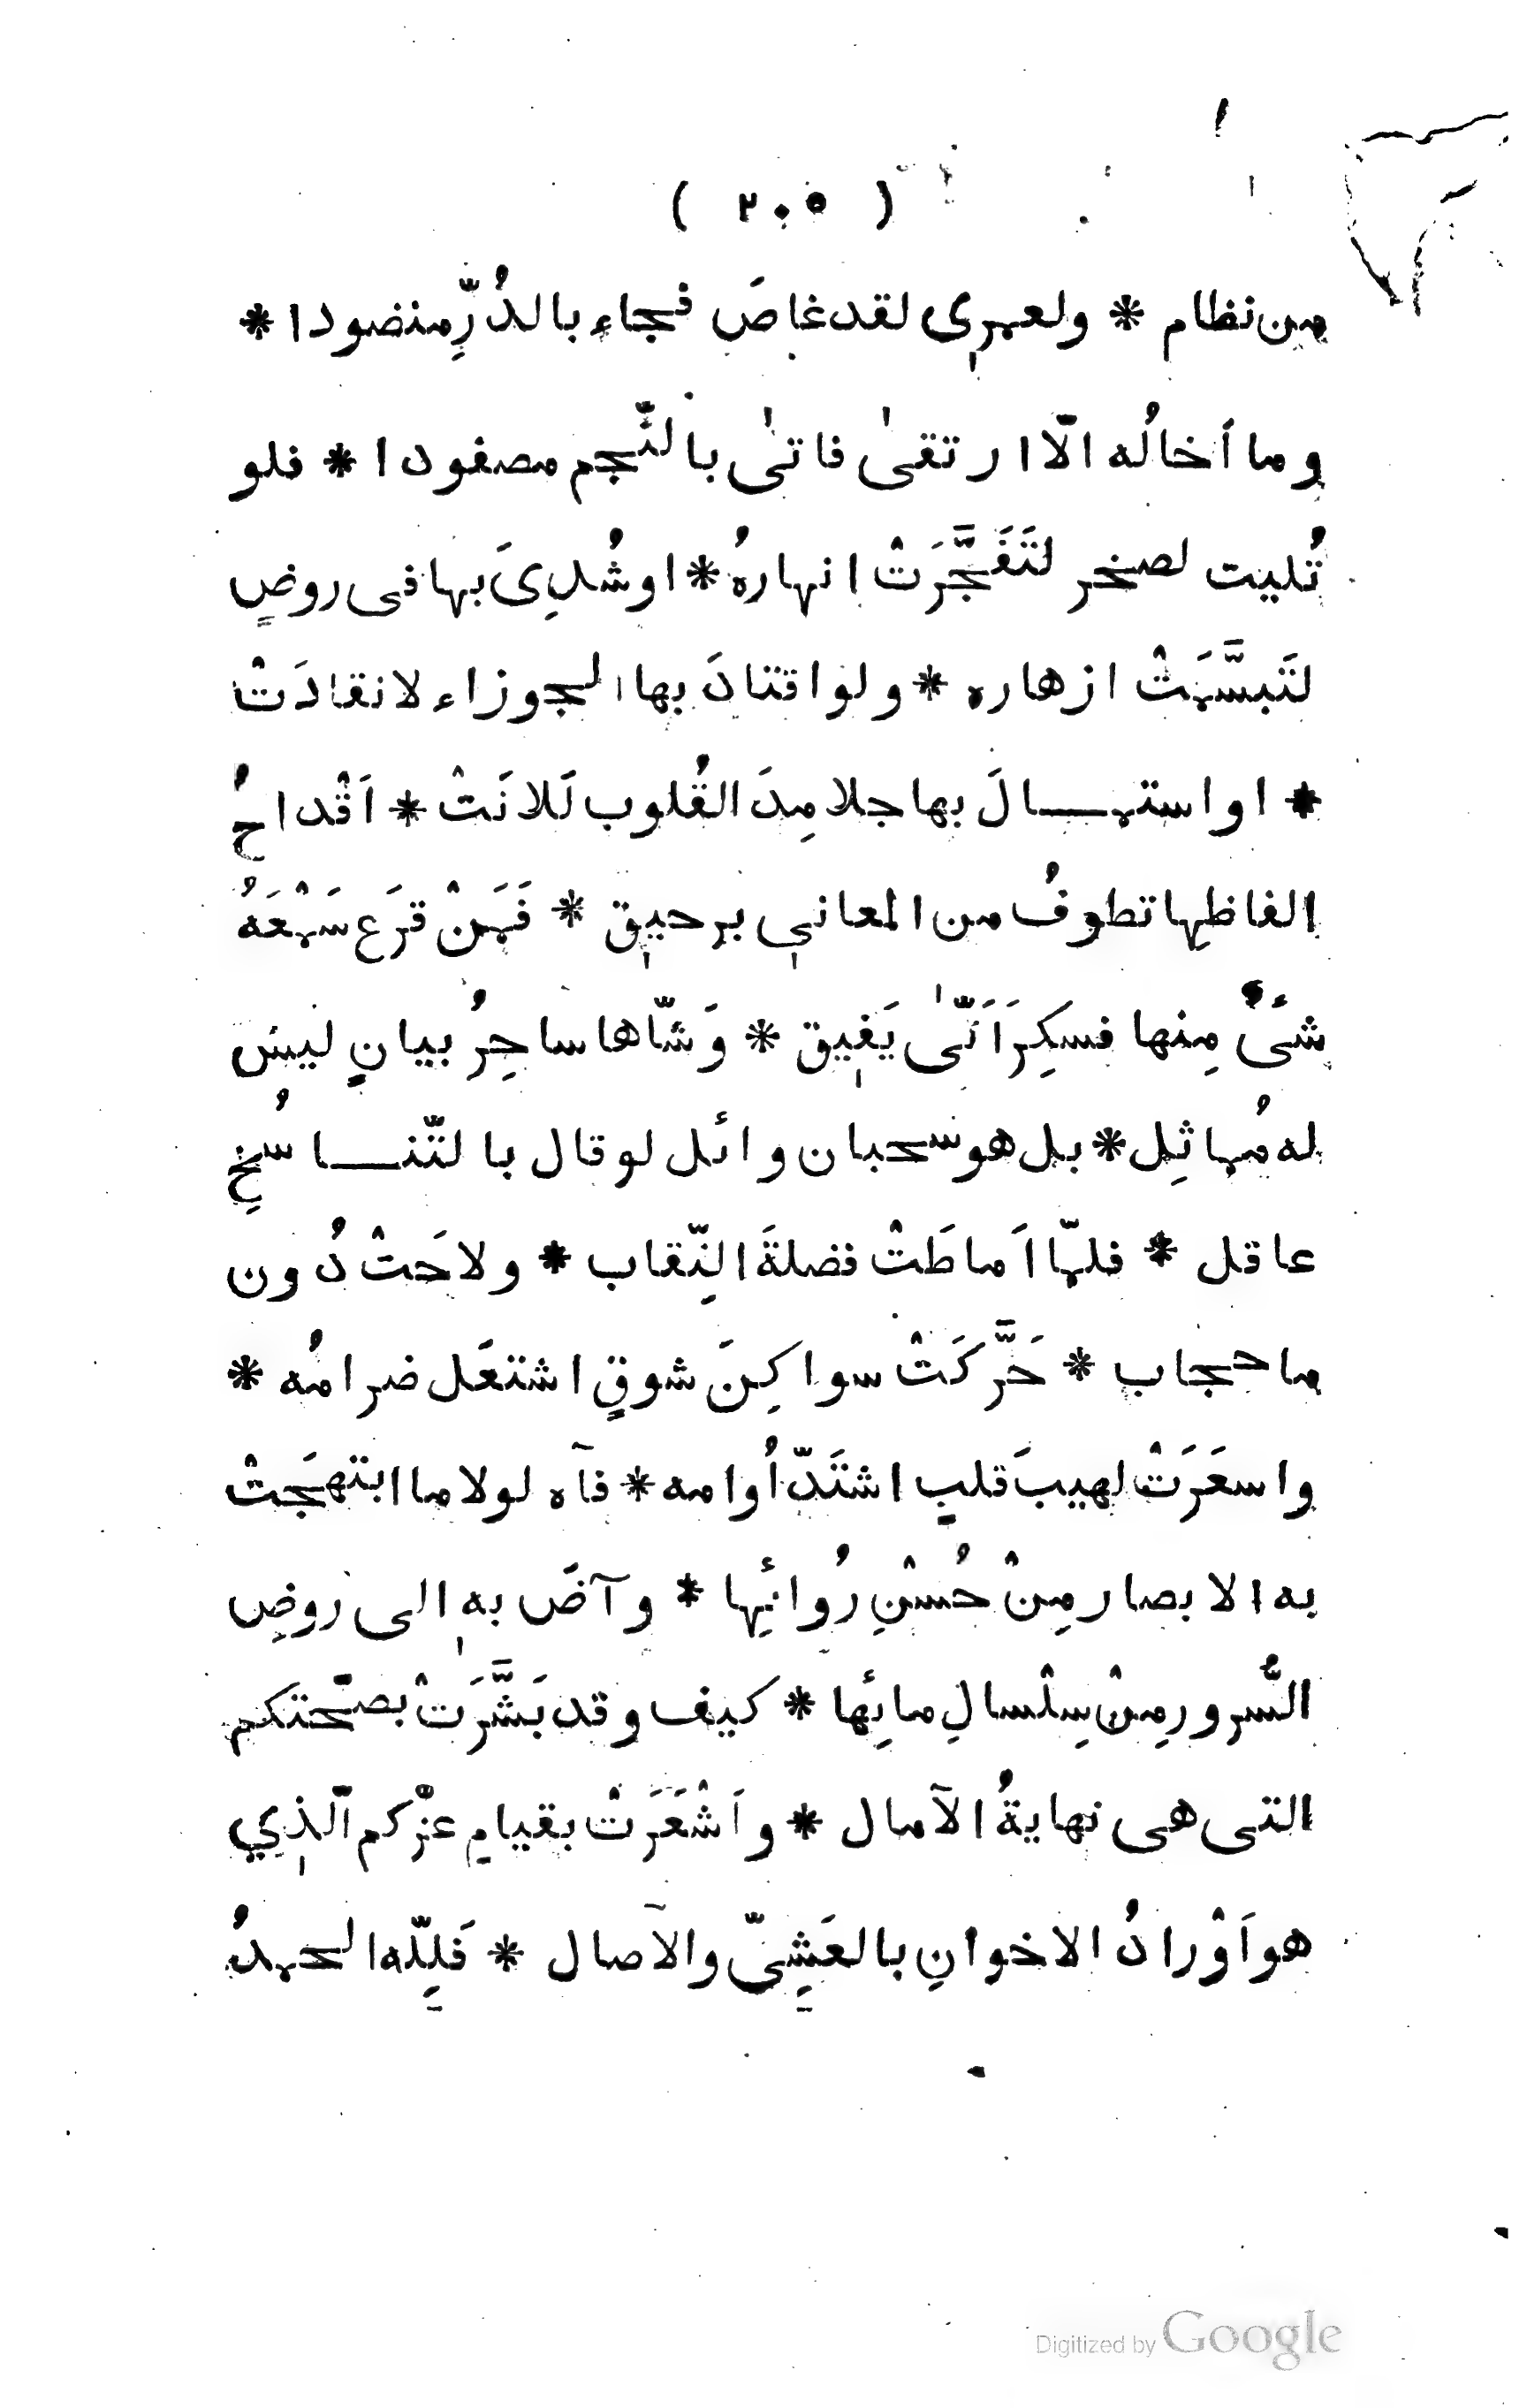 ( ٢٠٥ )
من نظام * ولعمرى لقد غاصَ فجاء بالدُرِّ منضودا *
وما اَخالُه الّا ارتقىٰ فاتىٰ بالنّجم مصفودا * فلو
تُليت لصخر لتَفَجَّرَتْ انهارهُ * او شُدِىَ بها فى روضٍ
لتَبسَّمَتْ ازهاره * ولو اقتادَ بها الجوزاء لانقادَتْ
* او استمــالَ بها جلامِدَ القُلوب لَلانَتْ * اَقْداحُ
الفاظِها تطوفُ من المعانى برحيق * فَمَنْ قرَع سَمْعَهُ
شىءٌ مِنها فسكِرَ اَنّىٰ يَفيق * وَشّاها ساحِرُ بيانٍ ليس
له مُماثِل * بل هو سحبان وائل لو قال بالتّنــاسُخِ
عاقل * فلمّا اَماطَتْ فضلةَ النِّقاب * ولاحَتْ دُون
ما حجاب * حَرَّكَتْ سواكِنَ شوقٍ اشتعَل ضرامُه *
واسعَرَتْ لهيبَ قلبٍ اشتَدّ اُوامه * فآه لولا ما ابتهجَتْ
به الابصار مِنْ حُسْنِ رُوائِها * وآضَ به الى روضِ
السُّرور مِنْ سِلْسالِ مائِها * كيف وقد بَشَّرَتْ بصحّتكم
التى هى نهايةُ الآمال * واَشْعَرَتْ بقيامِ عزّكم الّذِي
هو اَوْرادُ الاخوانِ بالعَشِىّ والآصال * فَلِلّه الحمدُ
Digitized by Google